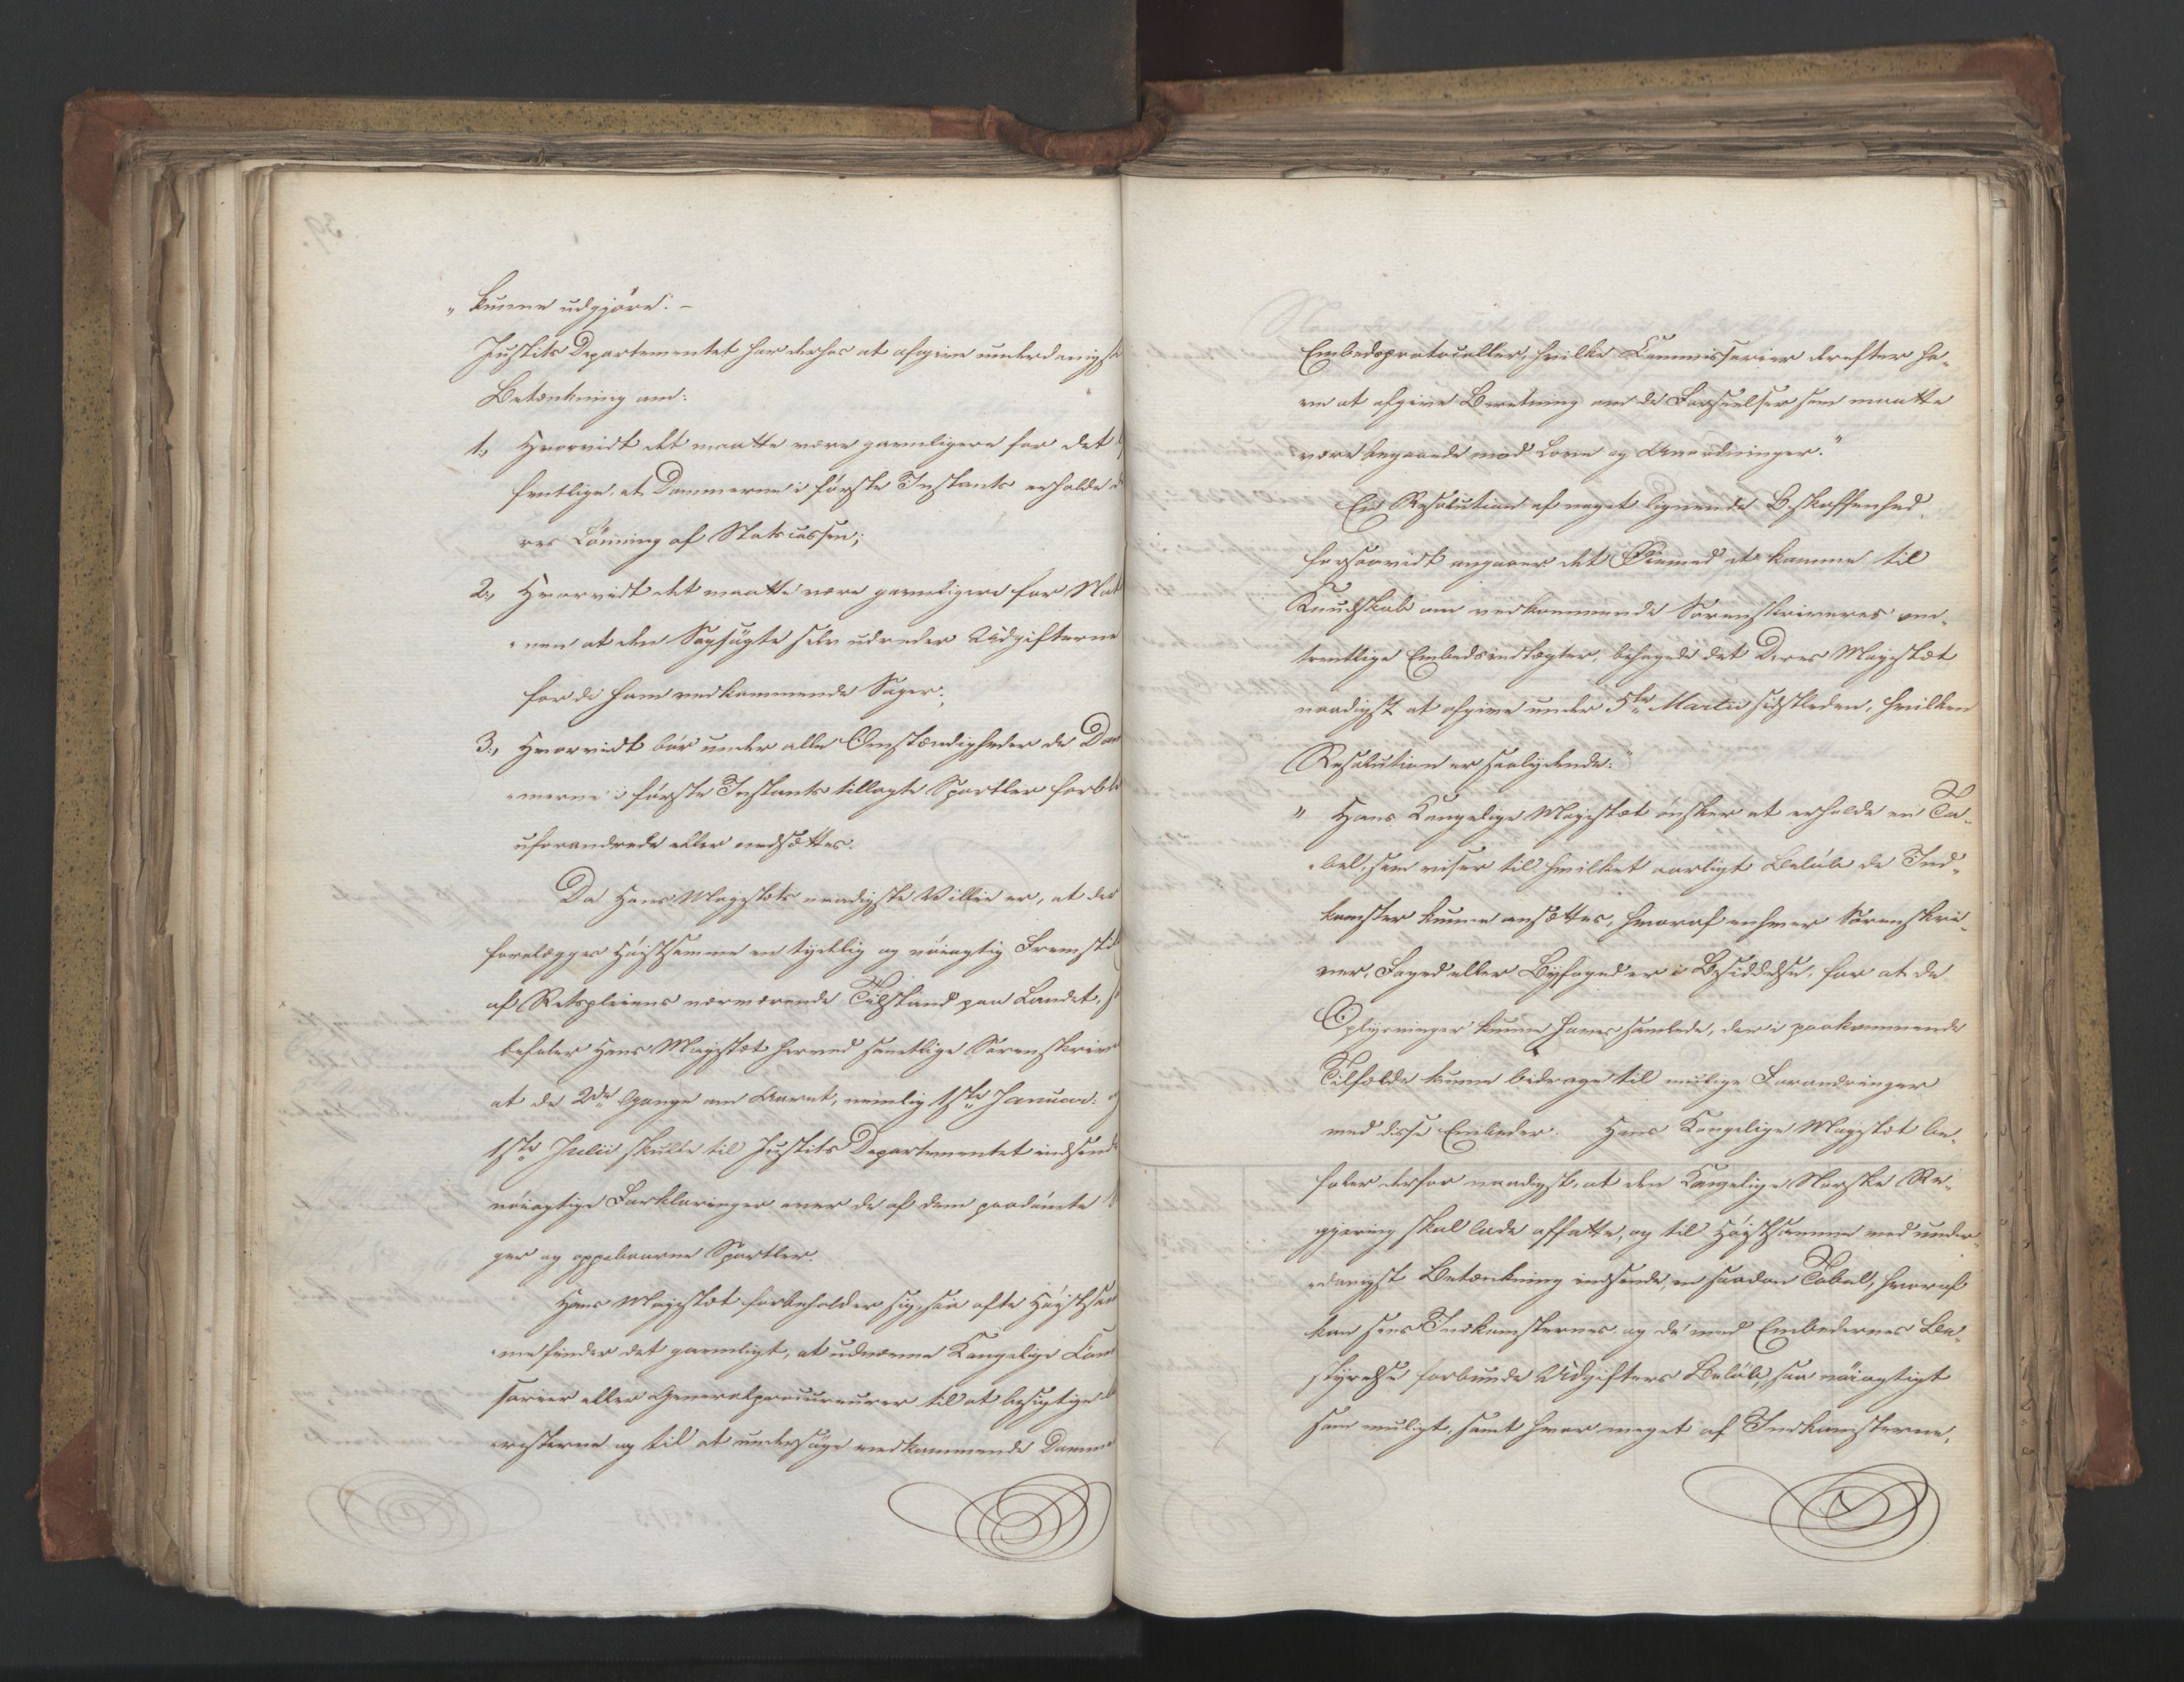 „kunne udgjøre. –
Justits Departementet har derhos at afgive underdanigst
Betænkning om:
1., Hvorvidt det maatte være gavnligere for det
fentlige, at Dommerne i første Instants erholde de
res Lønning af Statscassen;
2., Hvorvidt det maatte være gavnligere for Stat
nen at den Sagsøgte selv udreder Udgifterne
for de ham vedkommende Sager;
3., Hvorvidt bør under alle Omstændigheder de Dom
merne i første Instants tillagte Sportler forbli
uforandrede eller nedsættes.
Da Hans Majestæts naadigste Villie er, at der
forelægges Høistsamme en tydelig og nøiagtig Fremstil
af Retspleiens nærværende Tilstand paa Landet, s
befaler Hans Majestæt herved samtlige Sorenskrive
at de 2de Gange om Aaret, nemlig 1ste Januar: og
1ste Julii skulle til Justits Departementet indsende
nøiagtige Forklaringer over de af dem paadømte
ger og oppebaarne Sportler.
Hans Majestæt forbeholder sig, saa ofte Høistsam
me finder det gavnligt, at udnævne Kongelige Com
sarier eller Generalprocureurer til at besigtige
resterne og til at undersøge vedkommende Domme
Embedsprotocoller, hvilke Commissarier derefter ha„
ve at afgive Beretning om de Forseelser som maatte
være begaaede mod Love og Anordninger."
En Resolution af noget lignende Beskaffenhed
forsaavidt angaaer det Øiemed at komme til
Kundskab om vedkommende Sorenskriveres om„
trentlige Embedsindtægter, behagede det Deres Majestæt
naadigst at afgive under 5te Martii sidstleden, hvilken
Resolution er saalydende:"
„ Hans Kongelige Majestæt ønsker at erholde en Ta„
bel, som viser til hvilket aarligt Beløb de Ind„
komster kunne ansættes, hvoraf enhver Sorenskri„
ver, Foged eller Byfoged er i Besiddelse, for at de
Oplysninger kunne haves samlede, der i paakommende
Tilfælde kunne bidrage til mulige Forandringer
med disse Embeder. Hans Kongelige Majestæt be„
faler derfor naadigst, at den Kongelige Norske Re„
gjering skal lade affatte, og til Høistsamme med under„
danigst Betænkning indsende, en saadan Tabel, hvoraf
kan sees Indkomsternes og de med Embedernes Be„
styrelse forbundne Udgifters Beløb, saa nøiagtigt
som muligt, samt hvor meget af Indkomsterne,